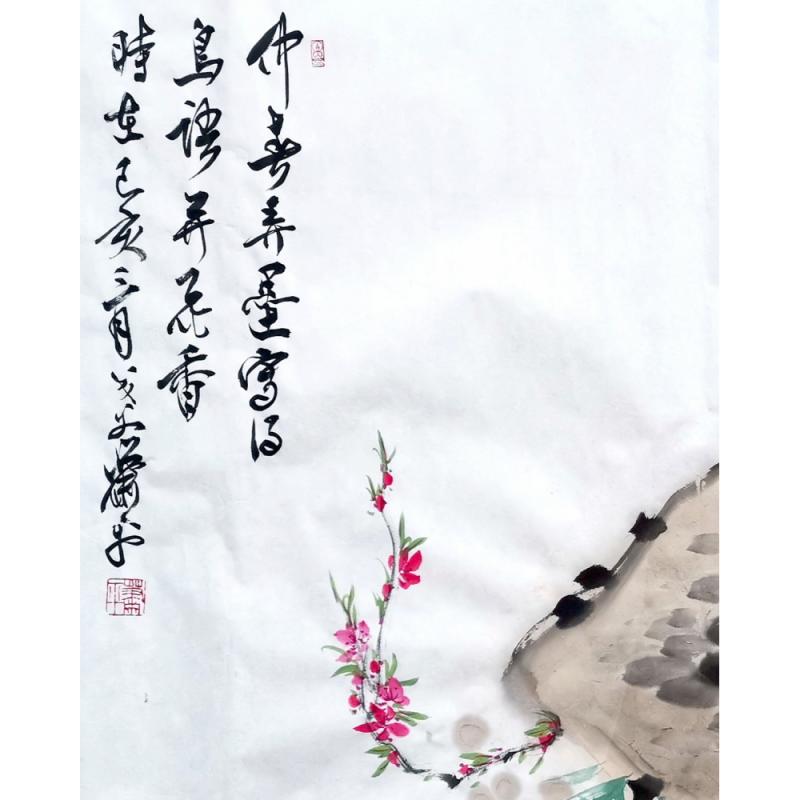 仲春弄墨寫得
鳥語并花香
時在己亥三月